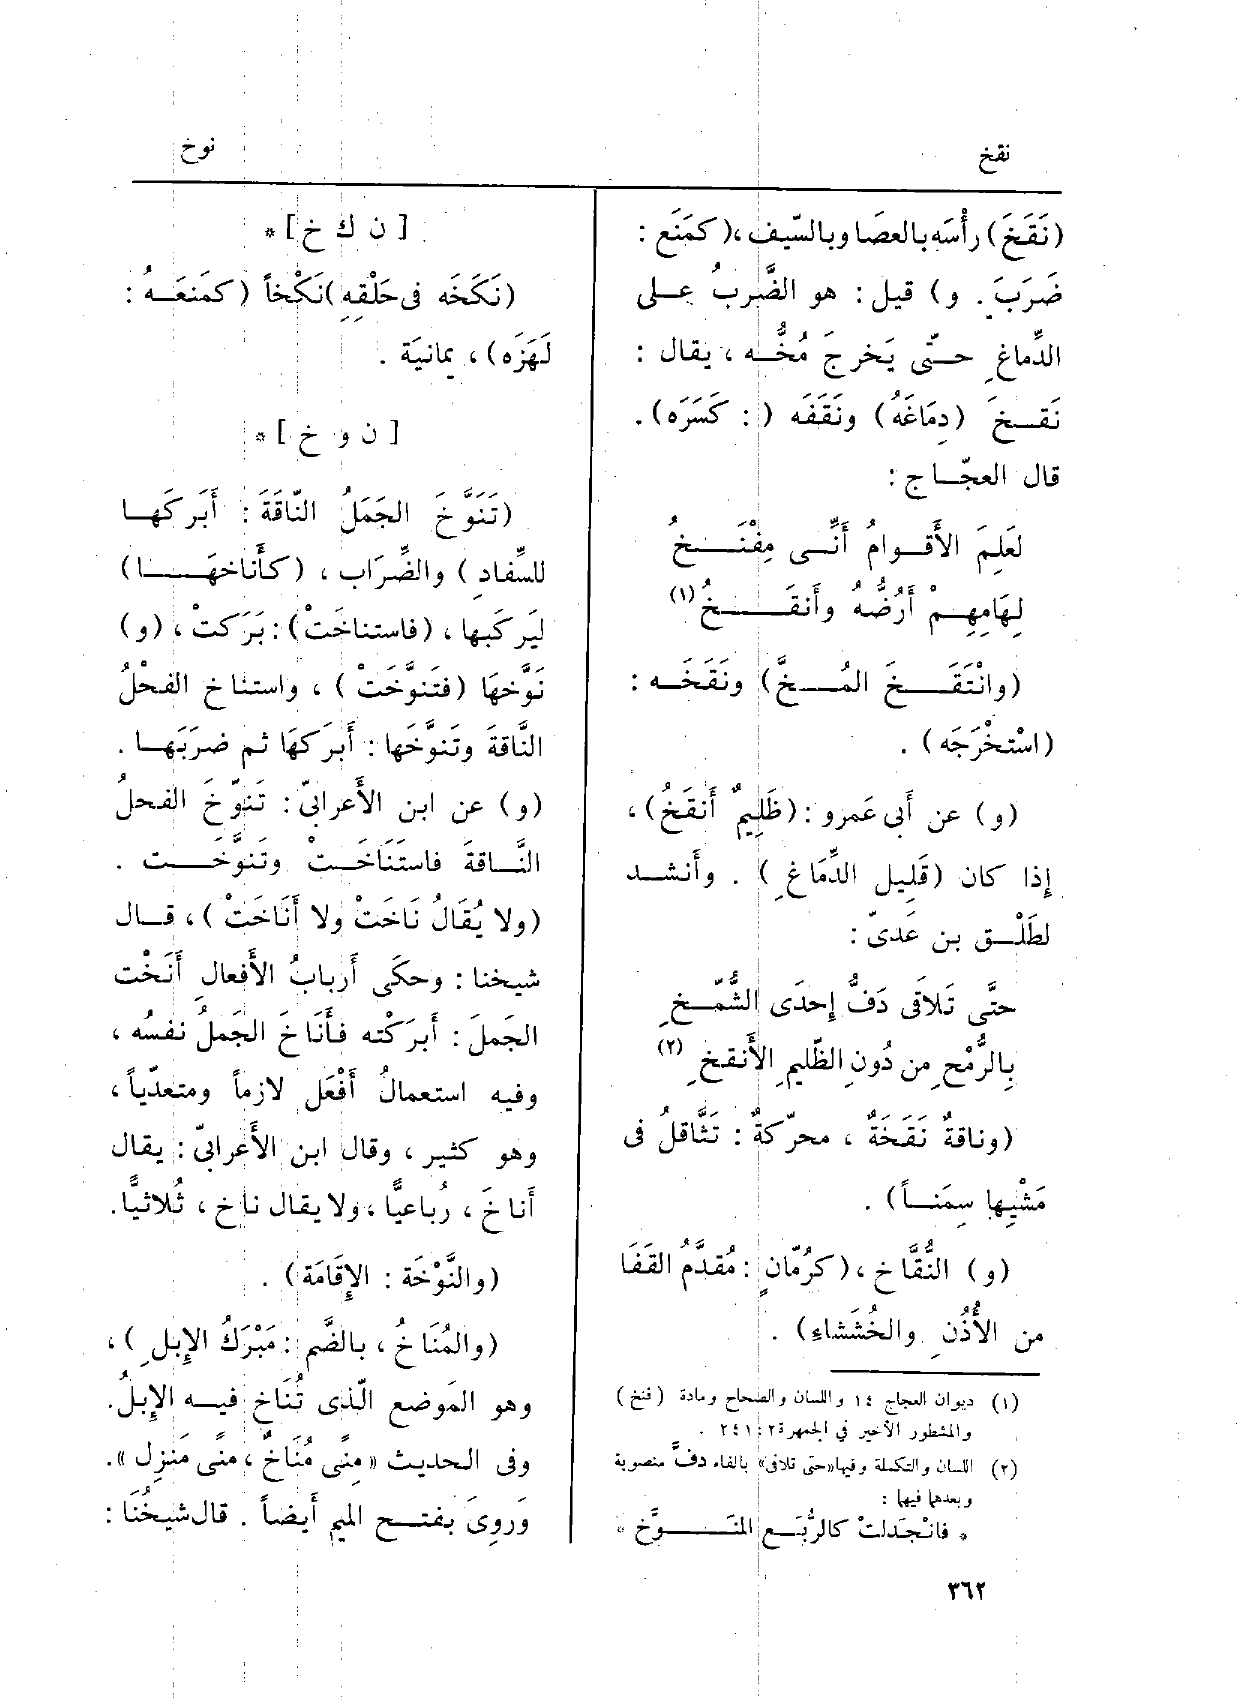 نقخ
نوخ
(نَقَخَ) رأْسَه بالعصَا وبالسّيف، (كمَنَع :
ضَرَبَ. و) قيل : هو الضَّربُ علـى
الدِّماغِ حتّى يَخرجَ مُخُّـه ، يقال :
نَقـخَ (دِمَاغَهُ) ونَقَفَه ( : كَسَرَه).
قال العجّـاج :
لَعَلِمَ الأَقـوامُ أَنِّـى مِفْنَـخُ
لِهَامِهِمْ أَرُضُّهُ وأَنقَـخُ (١)
(وانْتَقَـخَ المُـخَّ) ونَقَخَـه :
(اسْتخْرَجَه) .
(و) عن أَبى عَمرو : (ظَلِيمٌ أَنقَخُ)،
إذا كان (قَلِيل الدِّمَاغِ) . وأَنشـد
لطَلْـق بن عَدىّ :
حتَّى تَلاَقَى دَفُّ إِحدَى الشُّمَّـخِ
بِالرُّمْحِ من دُونِ الظّليمِ الأَنقخِ (٢)
(وناقةٌ نَقَخَةٌ ، محرّكةٌ : تَثَّاقلُ فى
مَشْيِها سِمَنـاً) .
(و) النُّقَّاخ ، (كرُمّانٍ : مُقدَّمُ القَفَا
من الأُذُنِ والخُشَشاءِ) .
(١) ديوان العجاج ١٤ واللسان والصحاح ومادة (فنخ)
والمشطور الأخير في الجمهرة ٢ : ٢٤١ .
(٢) اللسان والتكملة وفيها «حتى تلاقى» بالفاء دفَّ منصوبة
وبعدها فيها :
* فانْجَدلتْ كالرُّبَـع المنَـوَّخ *
[ ن ك خ ] *
(نَكَخَه فى حَلْقِهِ) نَكْخاً (كمَنَعَـهُ :
لَهَزَه) ، يمانيَة .
[ ن و خ ] *
(تَنَوَّخَ الجَمَلُ النّاقَةَ : أَبَركَهـا
للسِّفادِ) والضِّرَاب ، (كأَناخهَـا)
ليَركبها ، (فاستناخَتْ) : بَرَكتْ ، (و)
نَوَّخهَا (فتَنوَّخَتْ) ، واستناخ الفحْلُ
النَّاقةَ وتَنوَّخَها : أَبرَكهَا ثم ضرَبَهـا .
(و) عن ابن الأَعرابىّ : تَنوّخَ الفحلُ
النَّـاقةَ فاستَنَاخَـتْ وتَنوَّخَـت .
(ولا يُقَالُ نَاخَتْ ولا أَنَاخَتْ) ، قـال
شيخنا : وحكَى أَربابُ الأَفعالِ أَنَخْت
الجَملَ : أَبرَكْته فأَنَاخَ الجَملُ نفسُه ،
وفيه استعمالُ أَفْعَل لازماً ومتعدّياً ،
وهو كثير ، وقال ابن الأَعرابىّ : يقال
أَناخَ ، رُباعيًّا ، ولا يقال ناخ ، ثُلاثيًّا.
(والنَّوْخَة : الإِقَامَة) .
(والمُنَاخُ ، بالضَّم : مَبْرَكُ الإِبلِ) ،
وهو المَوضع الّذى تُنَاخ فيـه الإِبلُ.
وفى الحديث «مِنًى مُنَاخٌ ، منًى مَنزِل ».
وَروِىَ بفتـح الميم أَيضاً . قال شيخُنَا :
٣٦٢